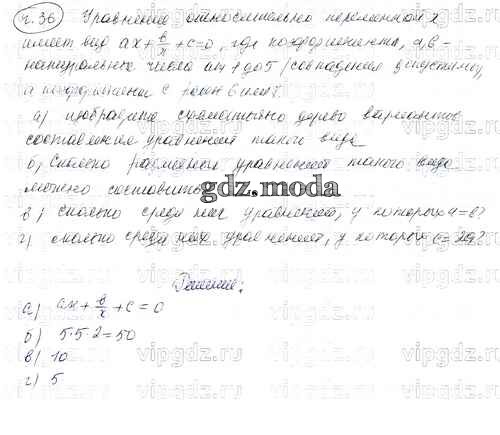 г. 36 Уравнение относительно переменной x
имеет вид ax + в/x + c = 0, где коэффициенты, a, в -
натуральные числа от 1 до 5 (совпадения допустимы),
а коэффициент c равен 6 или 7.
а) изобразите схематично дерево вариантов
составления уравнения такого вида
б) Сколько различных уравнений такого вида
можно составить
gdz.moda
в) сколько среди них уравнений, у которых a = в?
г) сколько среди них уравнений, у которых c = 2a?
Решение:
а) ax + в/x + c = 0
б) 5·5·2 = 50
в) 10
г) 5
vipgdz.ru vipgdz.ru vipgdz.ru